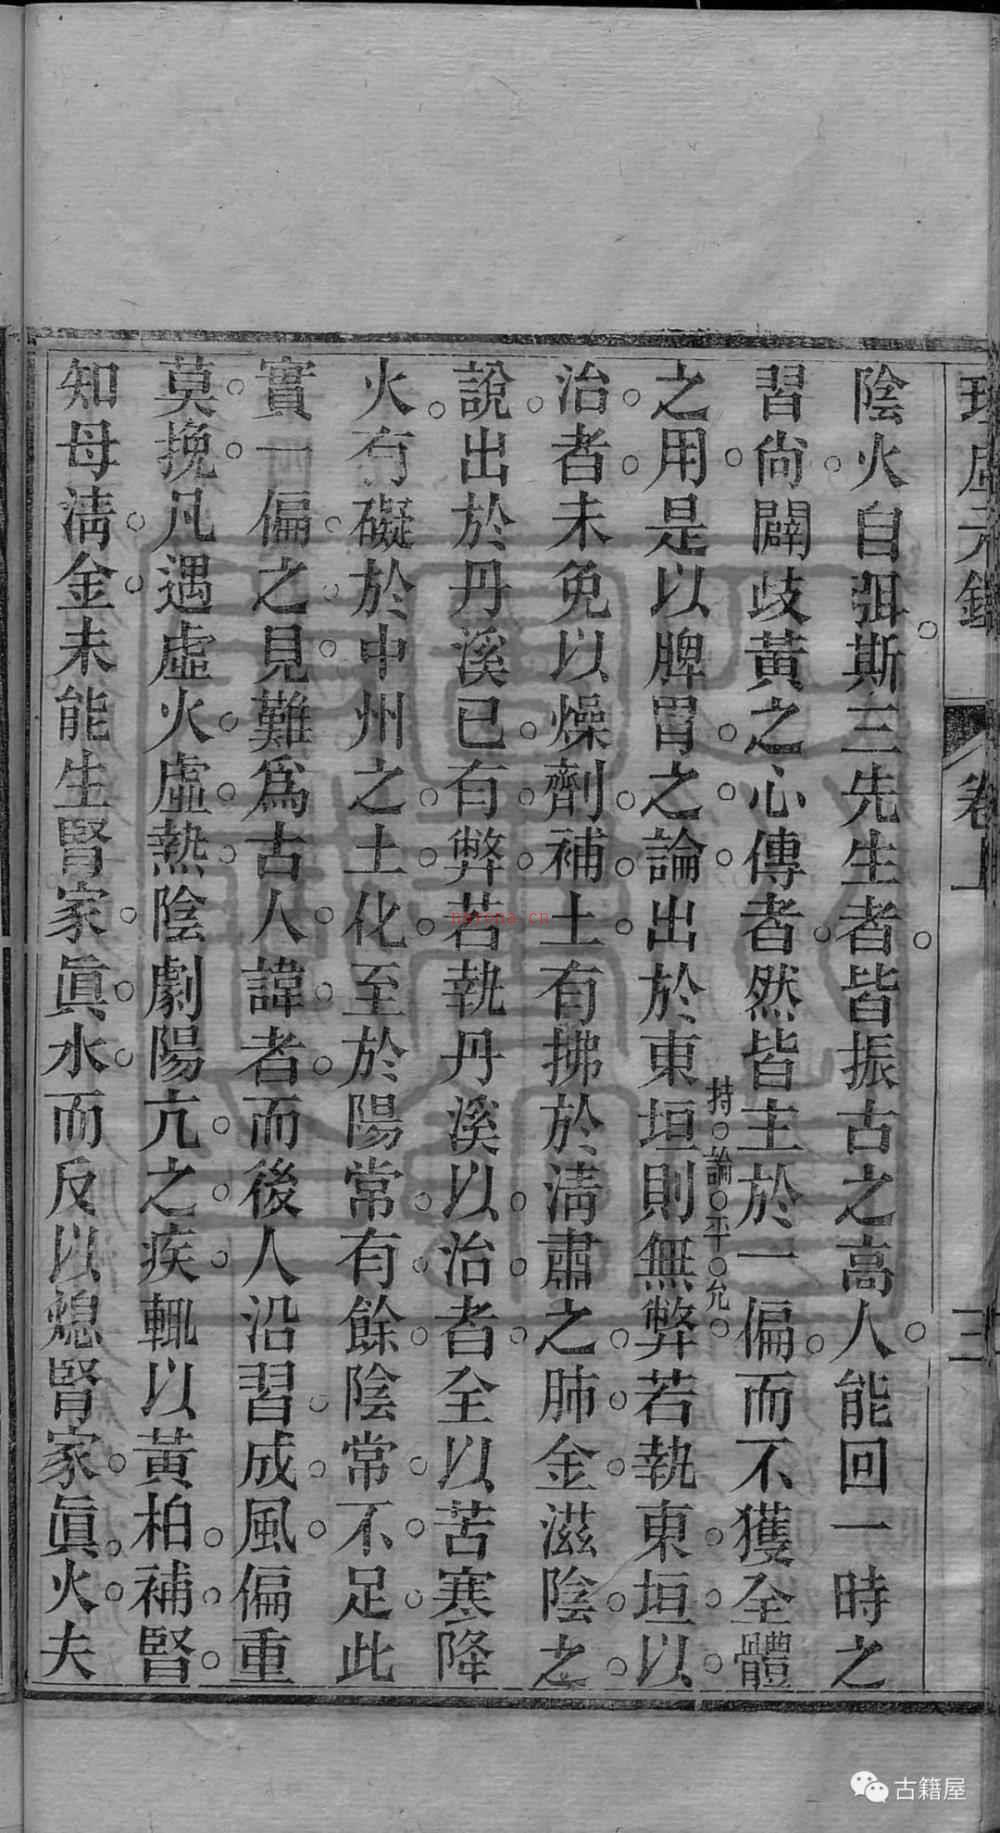 理虛元鑑 卷上 三
陰火自弭斯三先生者皆振古之高人能回一時之
習尚闢歧黃之心傳者然皆主於一偏而不獲全體
之用是以脾胃之論出於東垣則無弊若執東垣以
持論平允
治者未免以燥劑補土有拂於清肅之肺金滋陰之
說出於丹溪已有弊若執丹溪以治者全以苦寒降
火有礙於中州之土化至於陽常有餘陰常不足此
實一偏之見難爲古人諱者而後人沿習成風偏重
莫挽凡遇虛火虛熱陰劇陽亢之疾輒以黃柏補腎
知母清金未能生腎家眞水而反以熄腎家眞火夫
nayona.cn
古籍屋